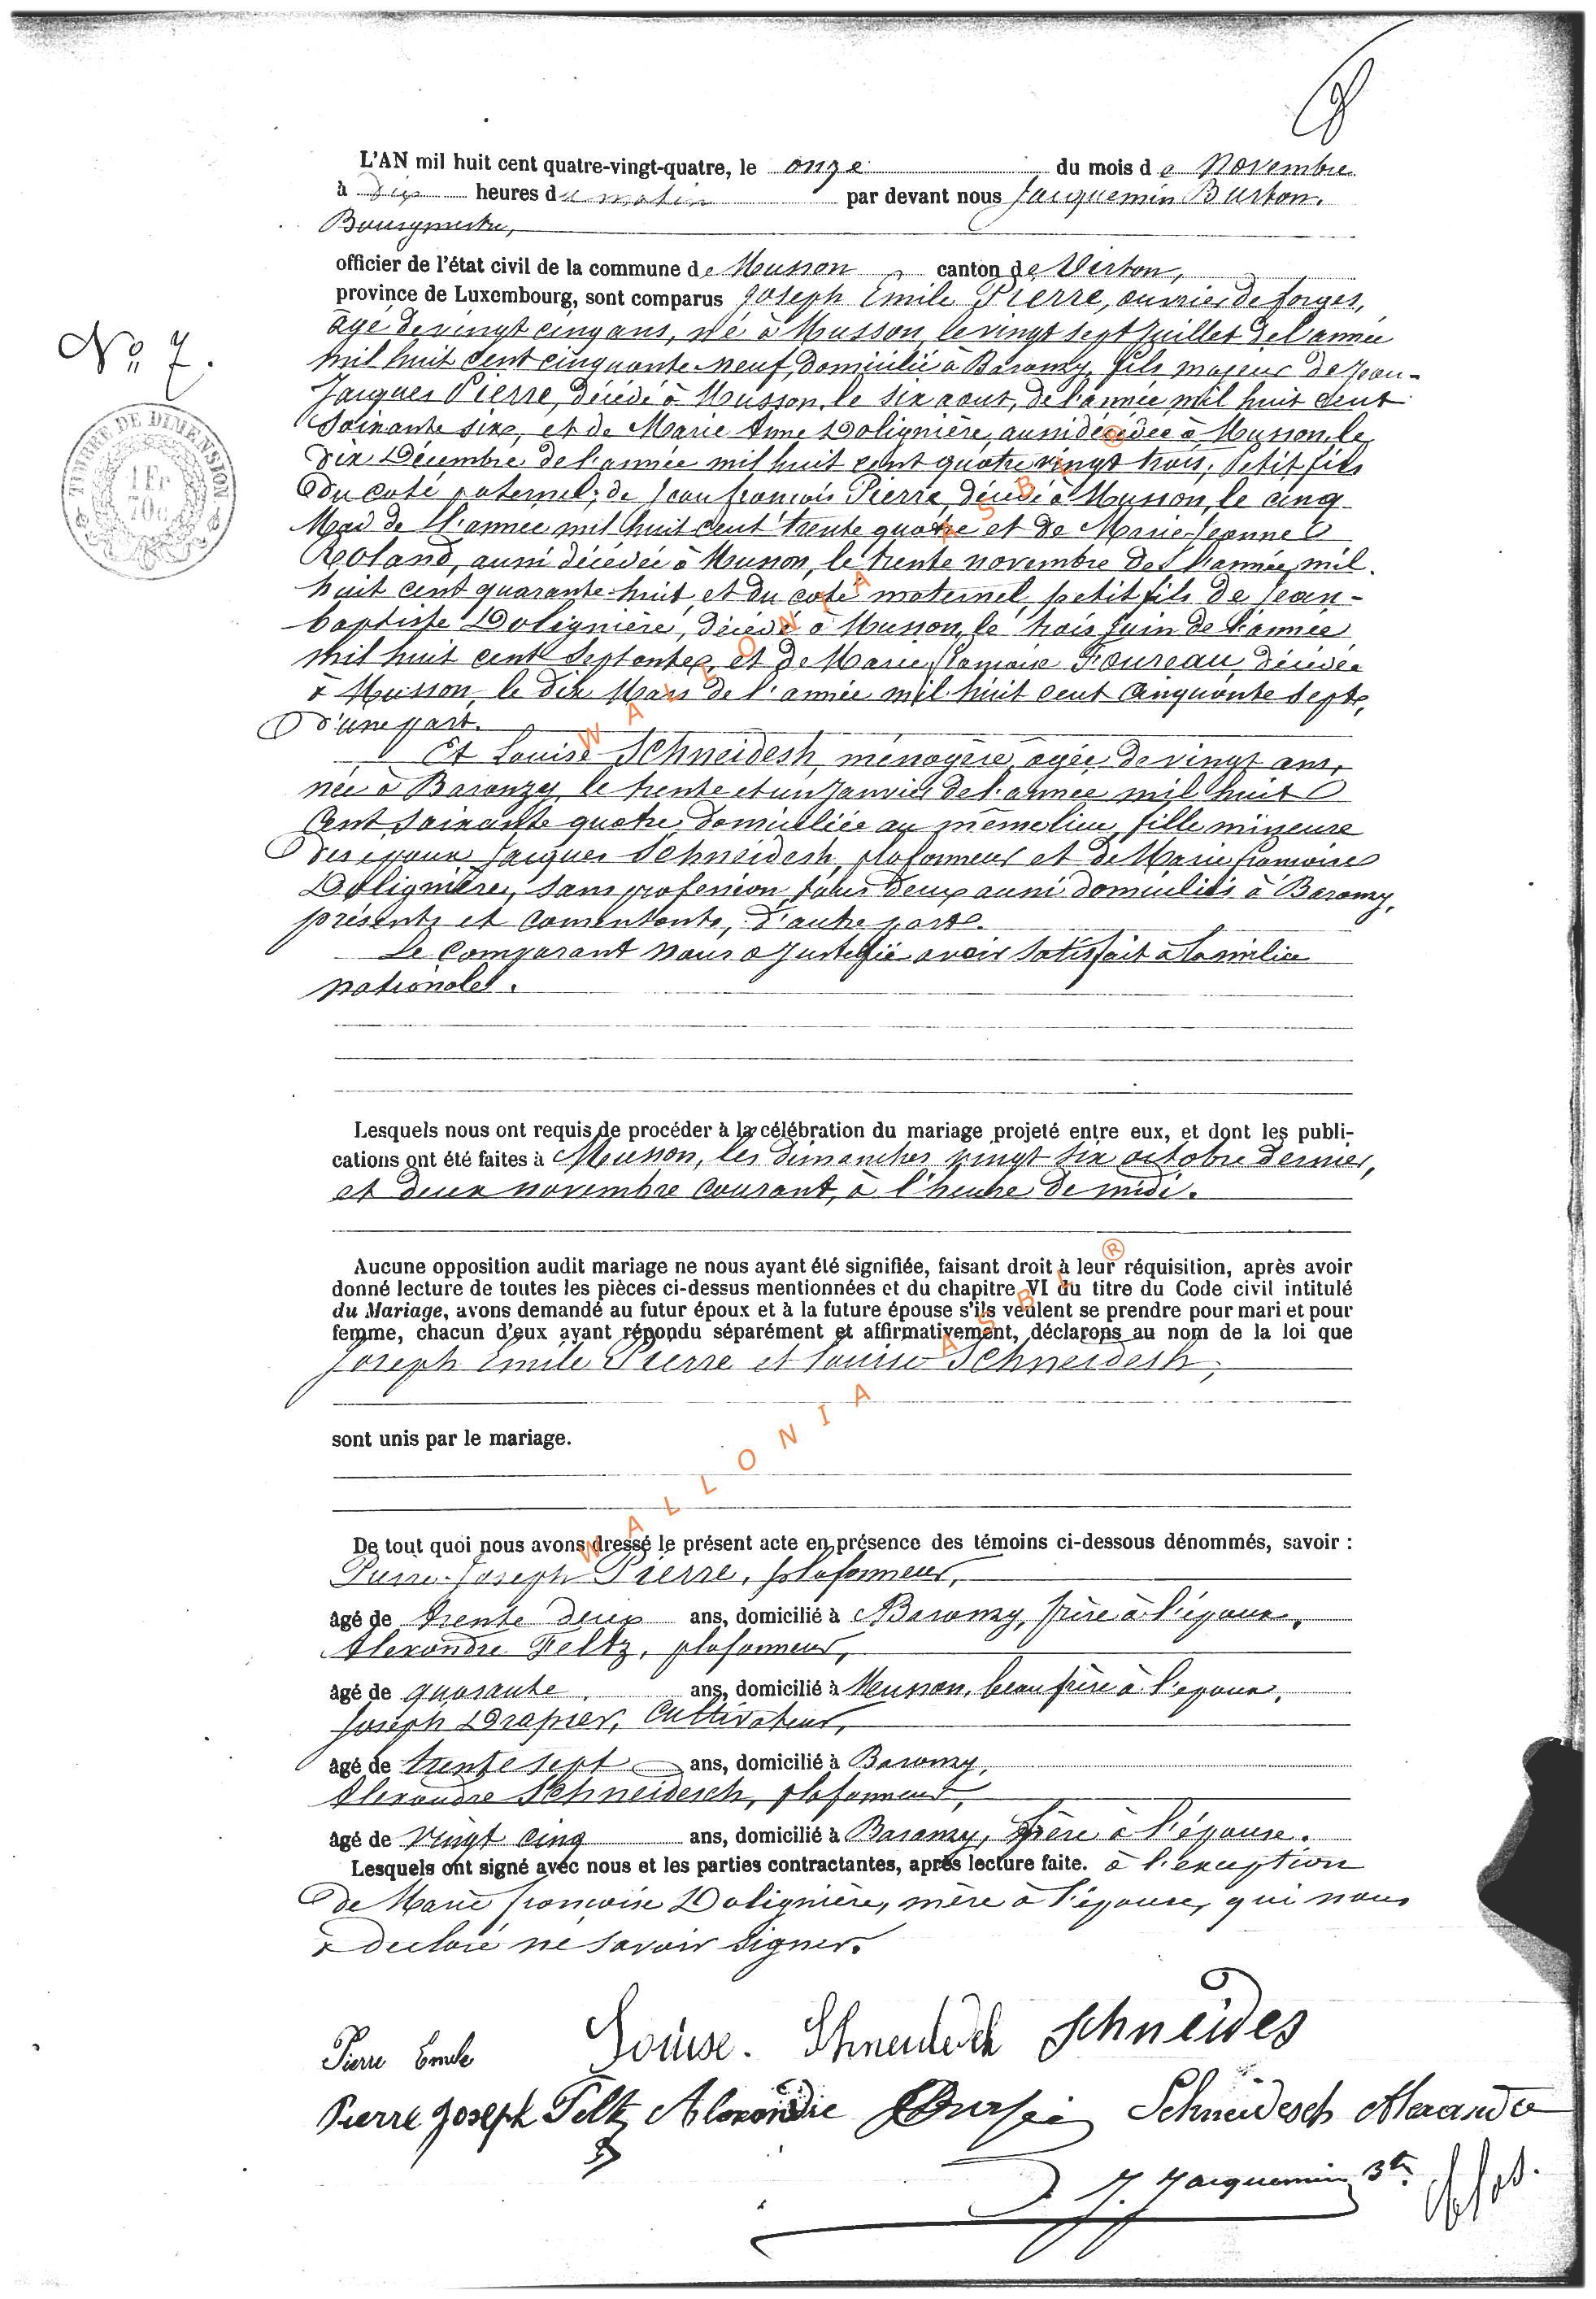 L'AN mil huit cent quatre-vingt-quatre, le onze du mois de Novembre
à dix heures du matin par devant nous Jacquemin Burton.
Bourgmestre,
officier de l'état civil de la commune de Musson canton de Virton,
province de Luxembourg, sont comparus Joseph Emile Pierre, ouvrier de forges,
âgé de vingt cinq ans, né à Musson, le vingt sept Juillet de l'année
mil huit cent cinquante neuf, domicilié à Baranzy, fils majeur de Jean-
Jacques Pierre, décédé à Musson, le six aout, de l'année mil huit cent
Soixante six, et de Marie Anne Dolignière, aussi décédée à Musson, le
dix Décembre de l'année mil huit cent quatre vingt trois; Petit fils
du coté paternel; de Jean françois Pierre, décédé à Musson, le cinq
Mai de l'année mil huit cent trente quatre et de Marie-Jeanne
Roland, aussi décédée à Musson, le trente novembre de l'année mil
huit cent quarante huit, et du coté maternel, petit fils de Jean-
baptiste Dolignière, décédé à Musson, le trois Juin de l'année
mil huit cent Septante, et de Marie framoise Foureau, décédée
à Musson, le dix Mars de l'année mil huit cent cinquante sept,
d'une part.
Et Louise Schneidesh, ménagère, agée de vingt ans,
née à Baranzy, le trente et un Janvier de l'année mil huit
Cent soixante quatre, domiciliée au même lieu, fille mineure
des époux Jacques Schneidesh, plafonneur et de Marie framoise
Dolignière, sans profession, tous deux aussi domiciliés à Baranzy,
présents et consentants, d'autre part.
Le comparant nous a Justifié avoir satisfait à la milice
nationale.
N° 7.
TIMBRE DE DIMENSION
1 Fr
70c
Lesquels nous ont requis de procéder à la célébration du mariage projeté entre eux, et dont les publi-
cations ont été faites à Musson, les dimanches vingt six octobre dernier,
et deux novembre courant, à l'heure de midi.
Aucune opposition audit mariage ne nous ayant été signifiée, faisant droit à leur réquisition, après avoir
donné lecture de toutes les pièces ci-dessus mentionnées et du chapitre VI du titre du Code civil intitulé
du Mariage, avons demandé au futur époux et à la future épouse s'ils veulent se prendre pour mari et pour
femme, chacun d'eux ayant répondu séparément et affirmativement, déclarons au nom de la loi que
Joseph Emile Pierre et Louise Schneidesh,
sont unis par le mariage.
De tout quoi nous avons dressé le présent acte en présence des témoins ci-dessous dénommés, savoir :
Pierre-Joseph Pierre, plafonneur,
âgé de trente deux ans, domicilié à Baranzy, frère à l'époux.
Alexandre Feltz, plafonneur,
âgé de quarante ans, domicilié à Musson, beau frère à l'époux.
Joseph Drapier, Cultivateur,
âgé de trente sept ans, domicilié à Baranzy,
Alexandre Schneidesch, plafonneur,
âgé de vingt cinq ans, domicilié à Baranzy, frère à l'épouse.
Lesquels ont signé avec nous et les parties contractantes, après lecture faite. à l'exception
de Marie françoise Dolignière, mère à l'épouse, qui nous
a déclaré ne savoir signer.
Pierre Emile Louise. Schneidech Schneides
Pierre Joseph Feltz Alexandre Schneidesch Alexandre
J. Jacquemin Btn
WALLONIA ASBL ®
WALLONIA ASBL ®